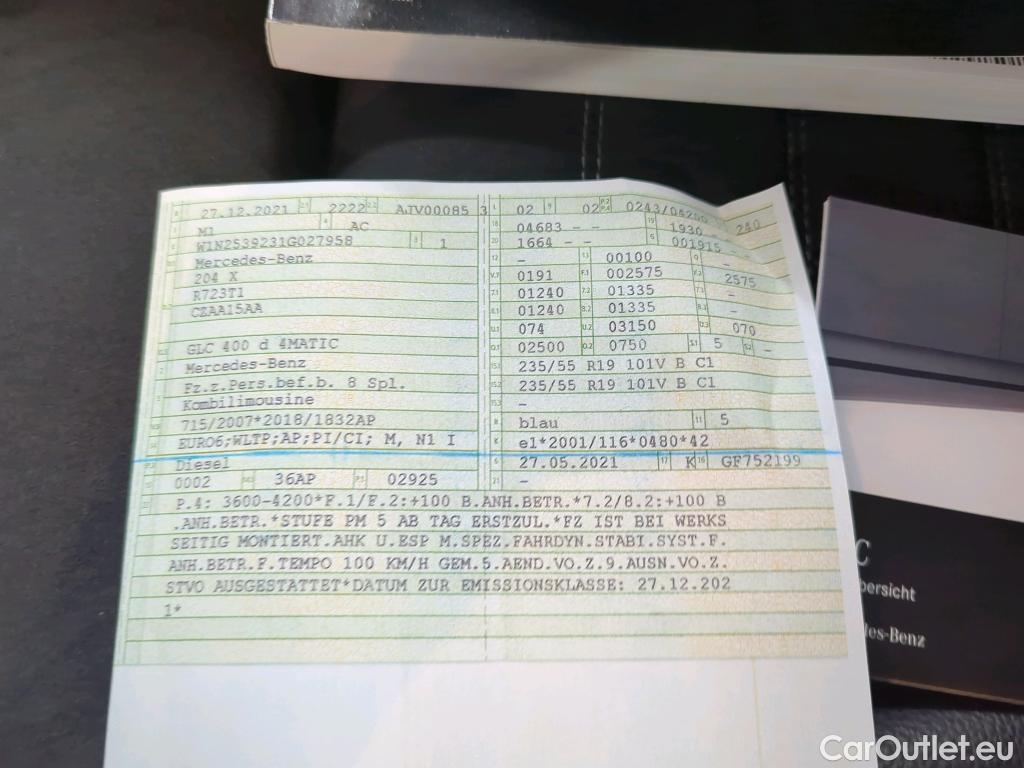 27.12.2021 2222 AJV00085 3
M1 AC
W1N2539231G027958 1
Mercedes-Benz
204 X
R723T1
CZAA15AA
GLC 400 d 4MATIC
Mercedes-Benz
Fz.z.Pers.bef.b. 8 Spl.
Kombilimousine
715/2007*2018/1832AP
EURO6;WLTP;AP;PI/CI; M, N1 I
Diesel
0002 36AP 02925
02 02 0243/04200
04683 - - 1930 - 240
1664 - - 001915 -
- 00100 -
0191 002575 2575
01240 01335 -
01240 01335 -
074 03150 070
02500 0750 5 -
235/55 R19 101V B C1
235/55 R19 101V B C1
-
blau 5
e1*2001/116*0480*42
27.05.2021 K GF752199
-
P.4: 3600-4200*F.1/F.2:+100 B.ANH.BETR.*7.2/8.2:+100 B
.ANH.BETR.*STUFE PM 5 AB TAG ERSTZUL.*FZ IST BEI WERKS
SEITIG MONTIERT.AHK U.ESP M.SPEZ.FAHRDYN.STABI.SYST.F.
ANH.BETR.F.TEMPO 100 KM/H GEM.5.AEND.VO.Z.9.AUSN.VO.Z.
STVO AUSGESTATTET*DATUM ZUR EMISSIONSKLASSE: 27.12.202
1*
C
bersicht
des-Benz
CarOutlet.eu